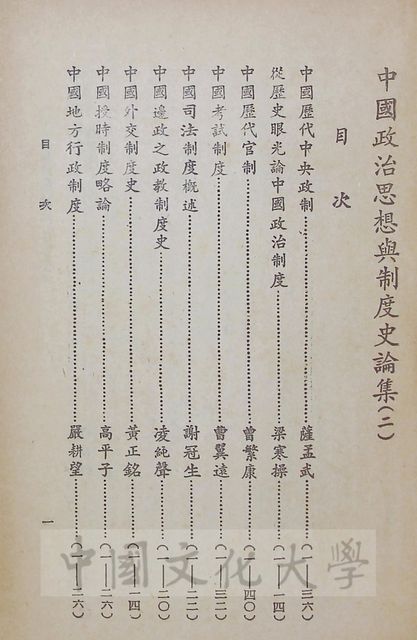 中國政治思想與制度史論集(二)
目次
中國歷代中央政制……薩孟武……(一—三六)
從歷史眼光論中國政治制度……梁寒操……(一—一四)
中國歷代官制……曾繁康……(一—四〇)
中國考試制度……曹翼遠……(一—三二)
中國司法制度概述……謝冠生……(一—二二)
中國邊政之政教制度史……凌純聲……(一—二〇)
中國外交制度史……黃正銘……(一—一四)
中國授時制度略論……高平子……(一—二六)
中國地方行政制度……嚴耕望……(一—二六)
目次 一
中國文化大學